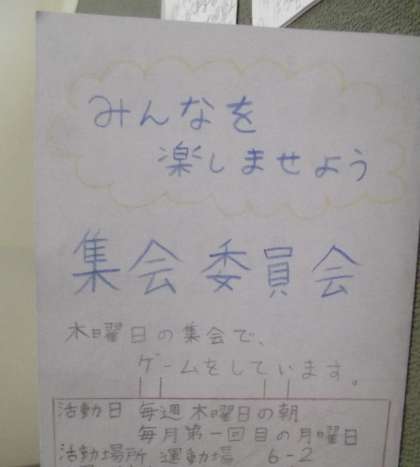 みんなを
楽しませよう
集会委員会
木曜日の集会で、
ゲームをしています。
活動日 毎週木曜日の朝
毎月第一回目の月曜日
活動場所 運動場 6-2